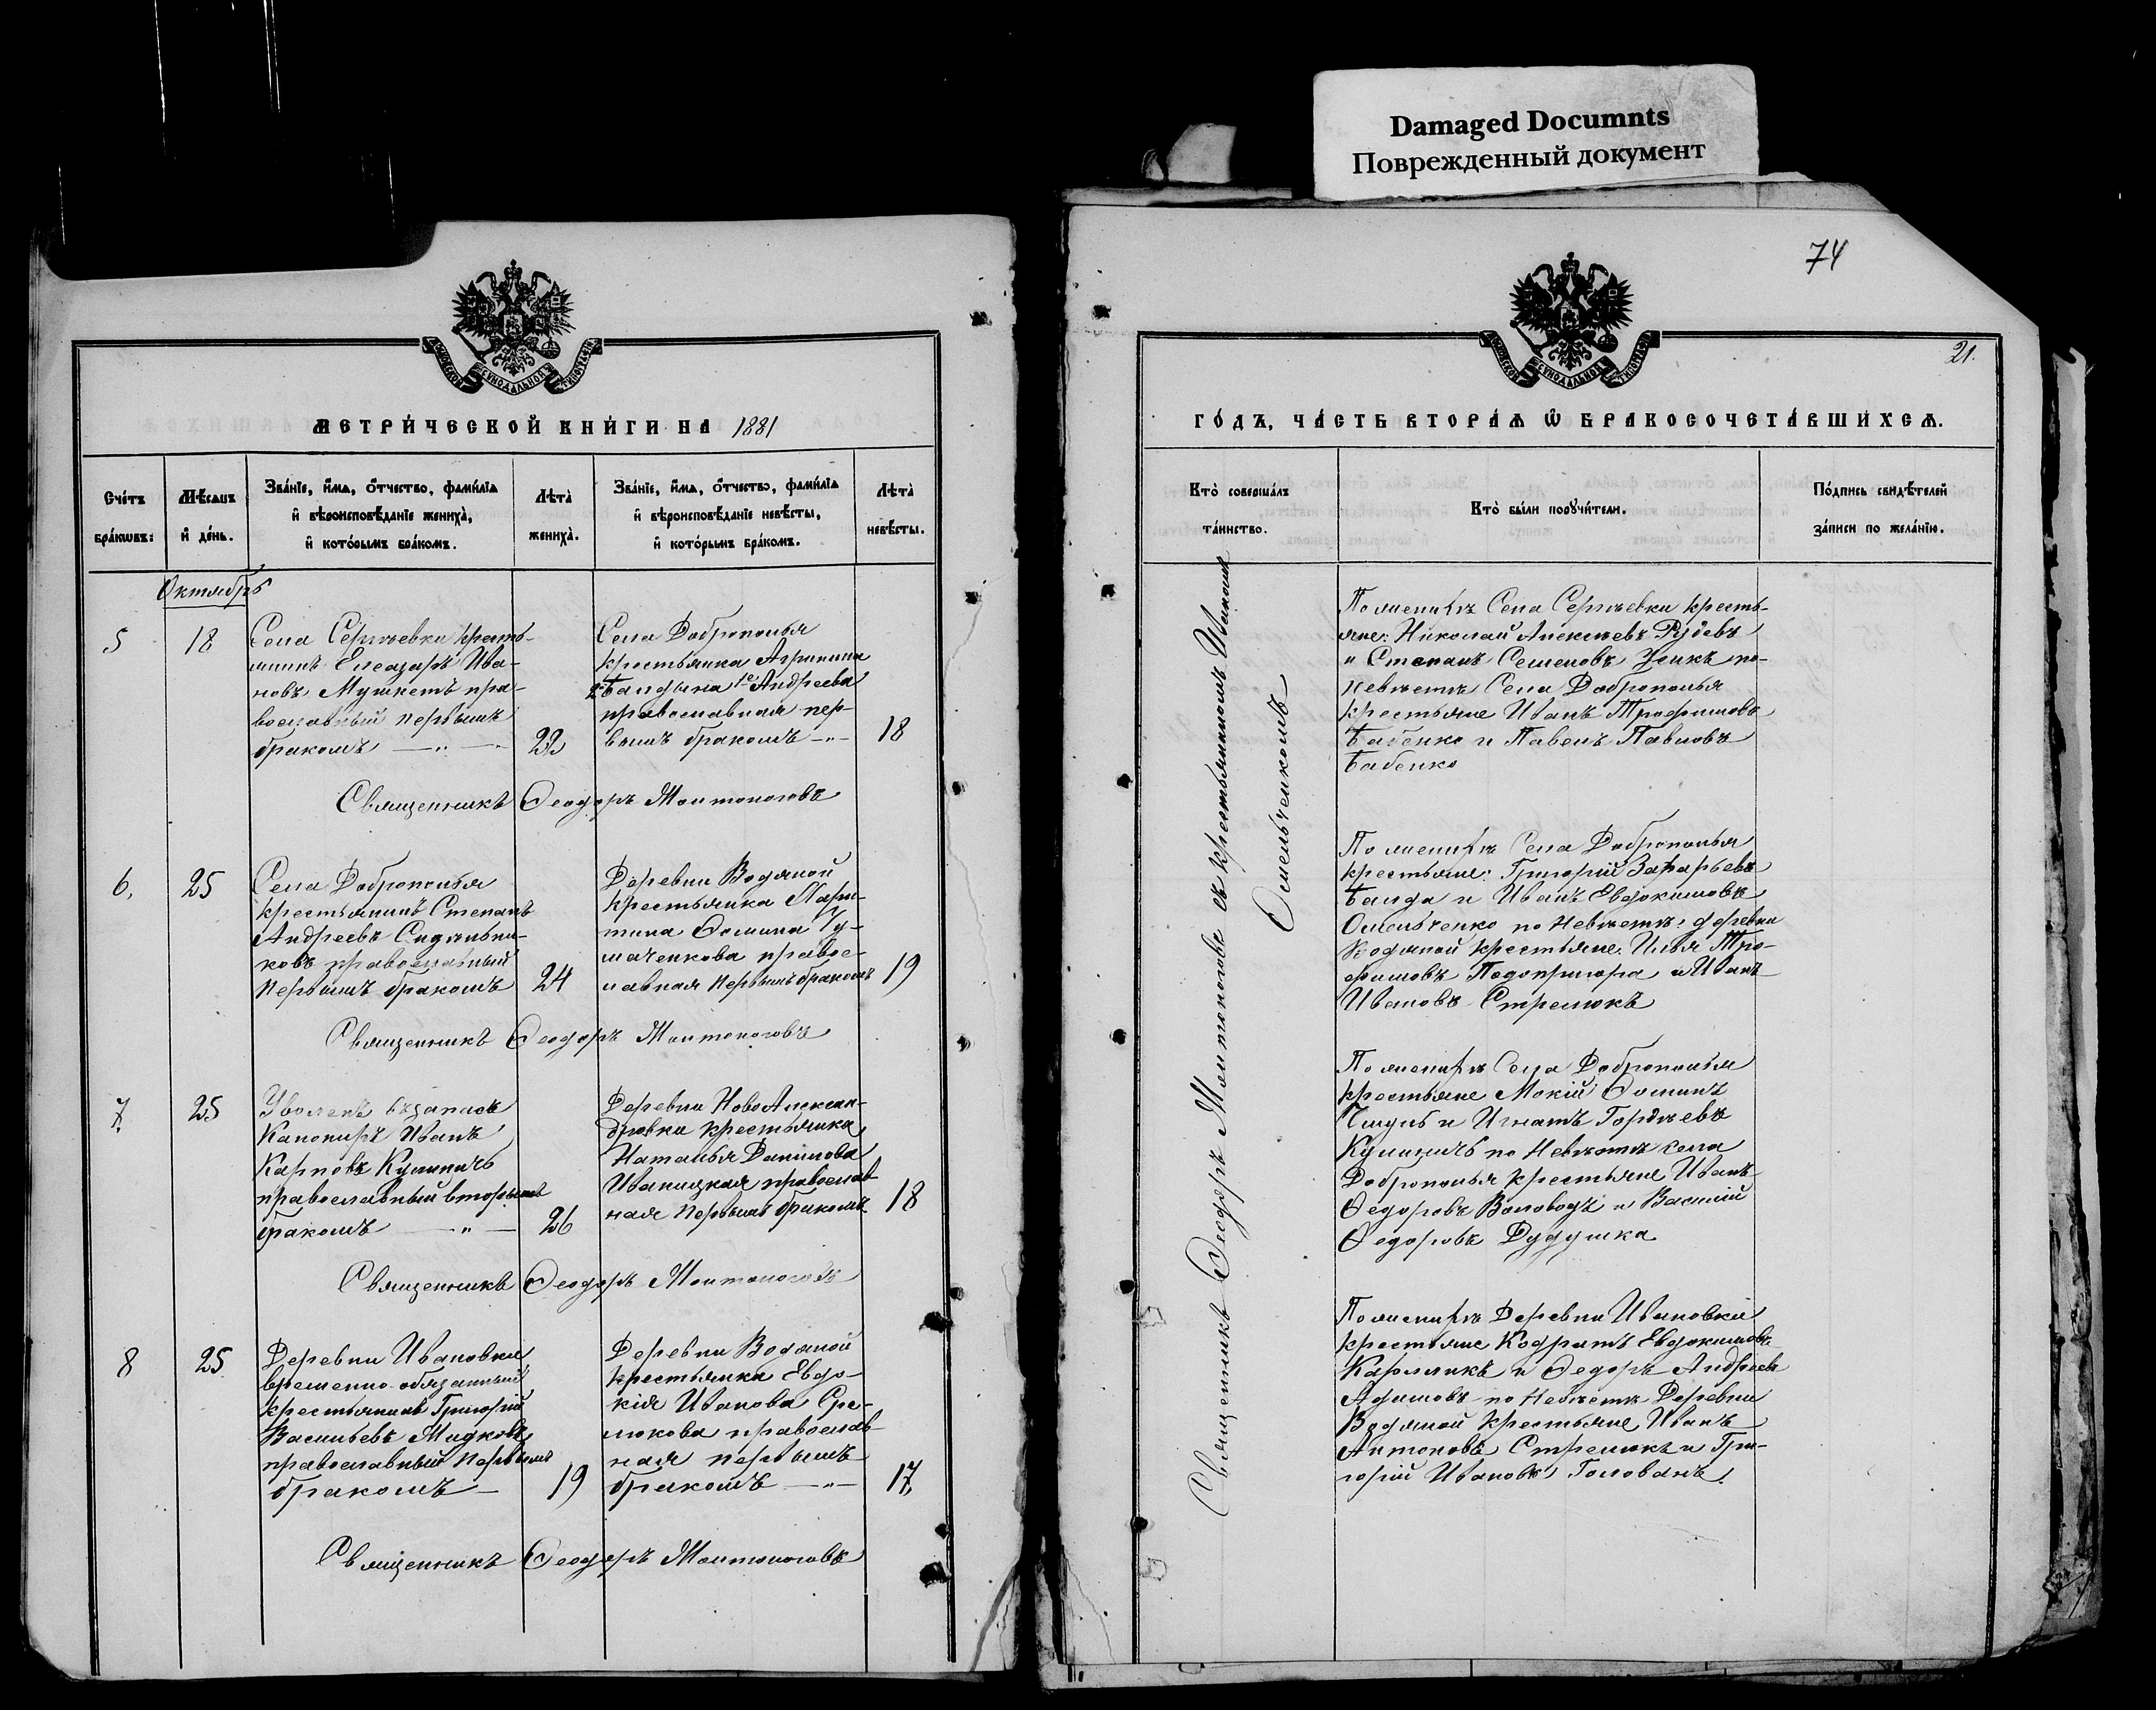 Damaged Documnts
Поврежденный документ
74
21.
МЕТРИ́ЧЕСКОЙ КНИ́ГИ НА 1881
ГО́ДЪ, ЧА́СТЬ ВТОРА́Ѧ Ѽ БРАКОСОЧЕТА́ВШИХСѦ.
Сче́тъ
бра́кѡвъ:
Мѣ́сѧцъ
и҆ де́нь.
Зва́нїе, и҆́мѧ, ѻ҆́тчество, фами́лїѧ
и҆ вѣроисповѣ́данїе жениха̀,
и҆ кото́рымъ бра́комъ.
Лѣта̀
жениха̀.
Зва́нїе, и҆́мѧ, ѻ҆́тчество, фами́лїѧ
и҆ вѣроисповѣ́данїе невѣ́сты,
и҆ кото́рымъ бра́комъ.
Лѣта̀
невѣ́сты.
Кто̀ соверша́лъ
та́инство.
Кто̀ бы́ли порꙋчи́тели.
По́дпись свидѣ́телей
за́писи по жела́нїю.
Октябрь
5
18
Села Сергѣевки кресть-
янинъ Елеазаръ Ива-
новъ Мушкетъ пра-
вославный первымъ
бракомъ — „ —
22
Села Доброполья
крестьянка Агрипина
2 Балдына 1 Андреева
православная пер-
вымъ бракомъ — „ —
18
Священникъ Ѳеодоръ Молтоноговъ
6.
25
Села Доброполья
крестьянинъ Степанъ
Андреевъ Сидѣльни-
ковъ православный
первымъ бракомъ
24
Деревни Водяной
крестьянка
мина Ѳомина Гу-
маченкова правос-
лавная первымъ бракомъ
19
Священникъ Ѳеодоръ Молтоноговъ
7.
25
Уволенъ въ запасъ
Канониръ Иванъ
Карповъ Кулиничъ
православный вторымъ
бракомъ — „ —
26
Деревни НовоАлексан-
дровки крестьянка
Наталья Данилова
Иваницкая православ-
ная первымъ бракомъ
18
Священникъ Ѳеодоръ Молтоноговъ
8
25
Деревни Ивановки
временно-обязанный
крестьянинъ Григорій
Васильевъ Мидковъ
православный первымъ
бракомъ —
19
Деревни Водяной
крестьянка Евдо-
кія Иванова Сре-
люкова православ-
ная первымъ
бракомъ — „ —
17.
Священникъ Ѳеодоръ Молтоноговъ
Священникъ Ѳеодоръ Молтоноговъ съ крестьяниномъ Иваномъ
Омельченкомъ
По женихѣ Села Сергѣевки кресть-
яне: Николай Алексѣевъ Рудевъ
и Степанъ Семеновъ Усикъ по-
невѣстѣ Села Доброполья
крестьяне Иванъ Трофимовъ
Бабенко и Павелъ Павловъ
Бабенко
По женихѣ Села Доброполья
крестьяне: Григорій Захарьевъ
Балда и Иванъ Евдокимовъ
Омельченко по невѣстѣ: деревни
Водяной крестьяне. Илья Тро-
фимовъ Подопригора и Иванъ
Ивановъ Стрелюкъ
По женихѣ Села Доброполья
крестьяне Мокій Ѳоминъ
и Игнатъ Гордѣевъ
Кулиничъ по невѣстѣ села
Доброполья крестьяне Иванъ
Ѳедоровъ Воловодъ и Василій
Ѳедоровъ Дудушка
По женихѣ Деревни Ивановки
крестьяне Кодратъ Евдокимовъ
Карлликъ и Ѳедоръ Андреевъ
Адамовъ по невѣстѣ Деревни
Водяной крестьяне Иванъ
Антоновъ Стрелюкъ и Гри-
горій Ивановъ Голованъ.